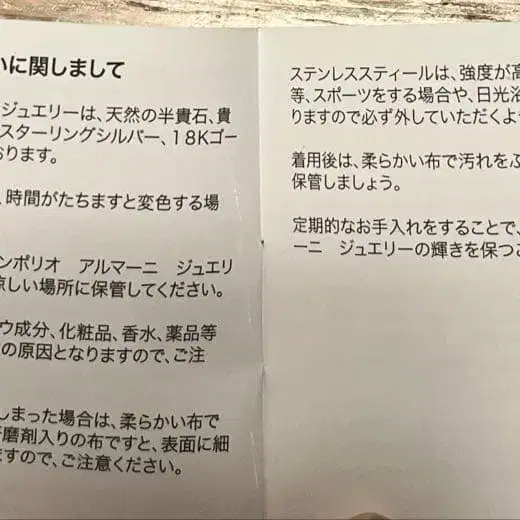 いに関しまして
ジュエリーは、天然の半貴石、貴
スターリングシルバー、18Kゴー
おります。
、時間がたちますと変色する場
ンポリオ アルマーニ ジュエリ
涼しい場所に保管してください。
ウ成分、化粧品、香水、薬品等
の原因となりますので、ご注
しまった場合は、柔らかい布で
研磨剤入りの布ですと、表面に細
ますので、ご注意ください。
ステンレススティールは、強度が高
等、スポーツをする場合や、日光浴
りますので必ず外していただくよう
着用後は、柔らかい布で汚れをふ
保管しましょう。
定期的なお手入れをすることで、
ーニ ジュエリーの輝きを保つこ